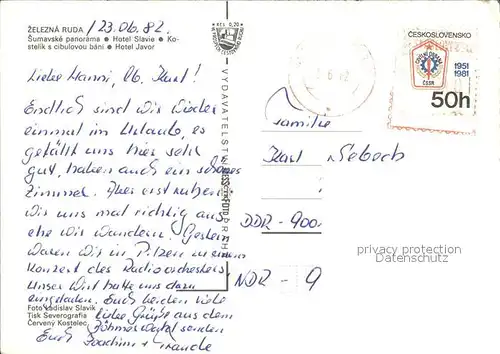 ŽELEZNÁ RUDA /23.06.82.
Šumavské panorama • Hotel Slavie • Ko-
stelík s cibulovou bání • Hotel Javor
Liebe Hanni, lb. Kurt!
Endlich sind wir wieder
einmal im Urlaub, es
gefällt uns hier sehr
gut, haben auch ein schönes
Zimmer. Aber erst ruhen
wir uns mal richtig aus
ehe wir wandern. Gestern
waren wir in Pilzen zu einem
Konzert des Radioorchesters,
unser Wirt hatte uns dazu
eingeladen. Euch beiden viele
liebe Grüße aus dem
Böhmerwald senden
Euch Joachim +
Foto Ladislav Slavík
Tisk Severografia
Červený Kostelec
KČS 0,20
VYDAVATELSTVÍ PRESSFOTO PRAHA
ČESKOSLOVENSKO
CIVILNÍ OBRANA
ČSSR
1951
1981
50h
Familie
Kurt Seboch
DDR - 900
NDR - 9
privacy protection
Datenschutz